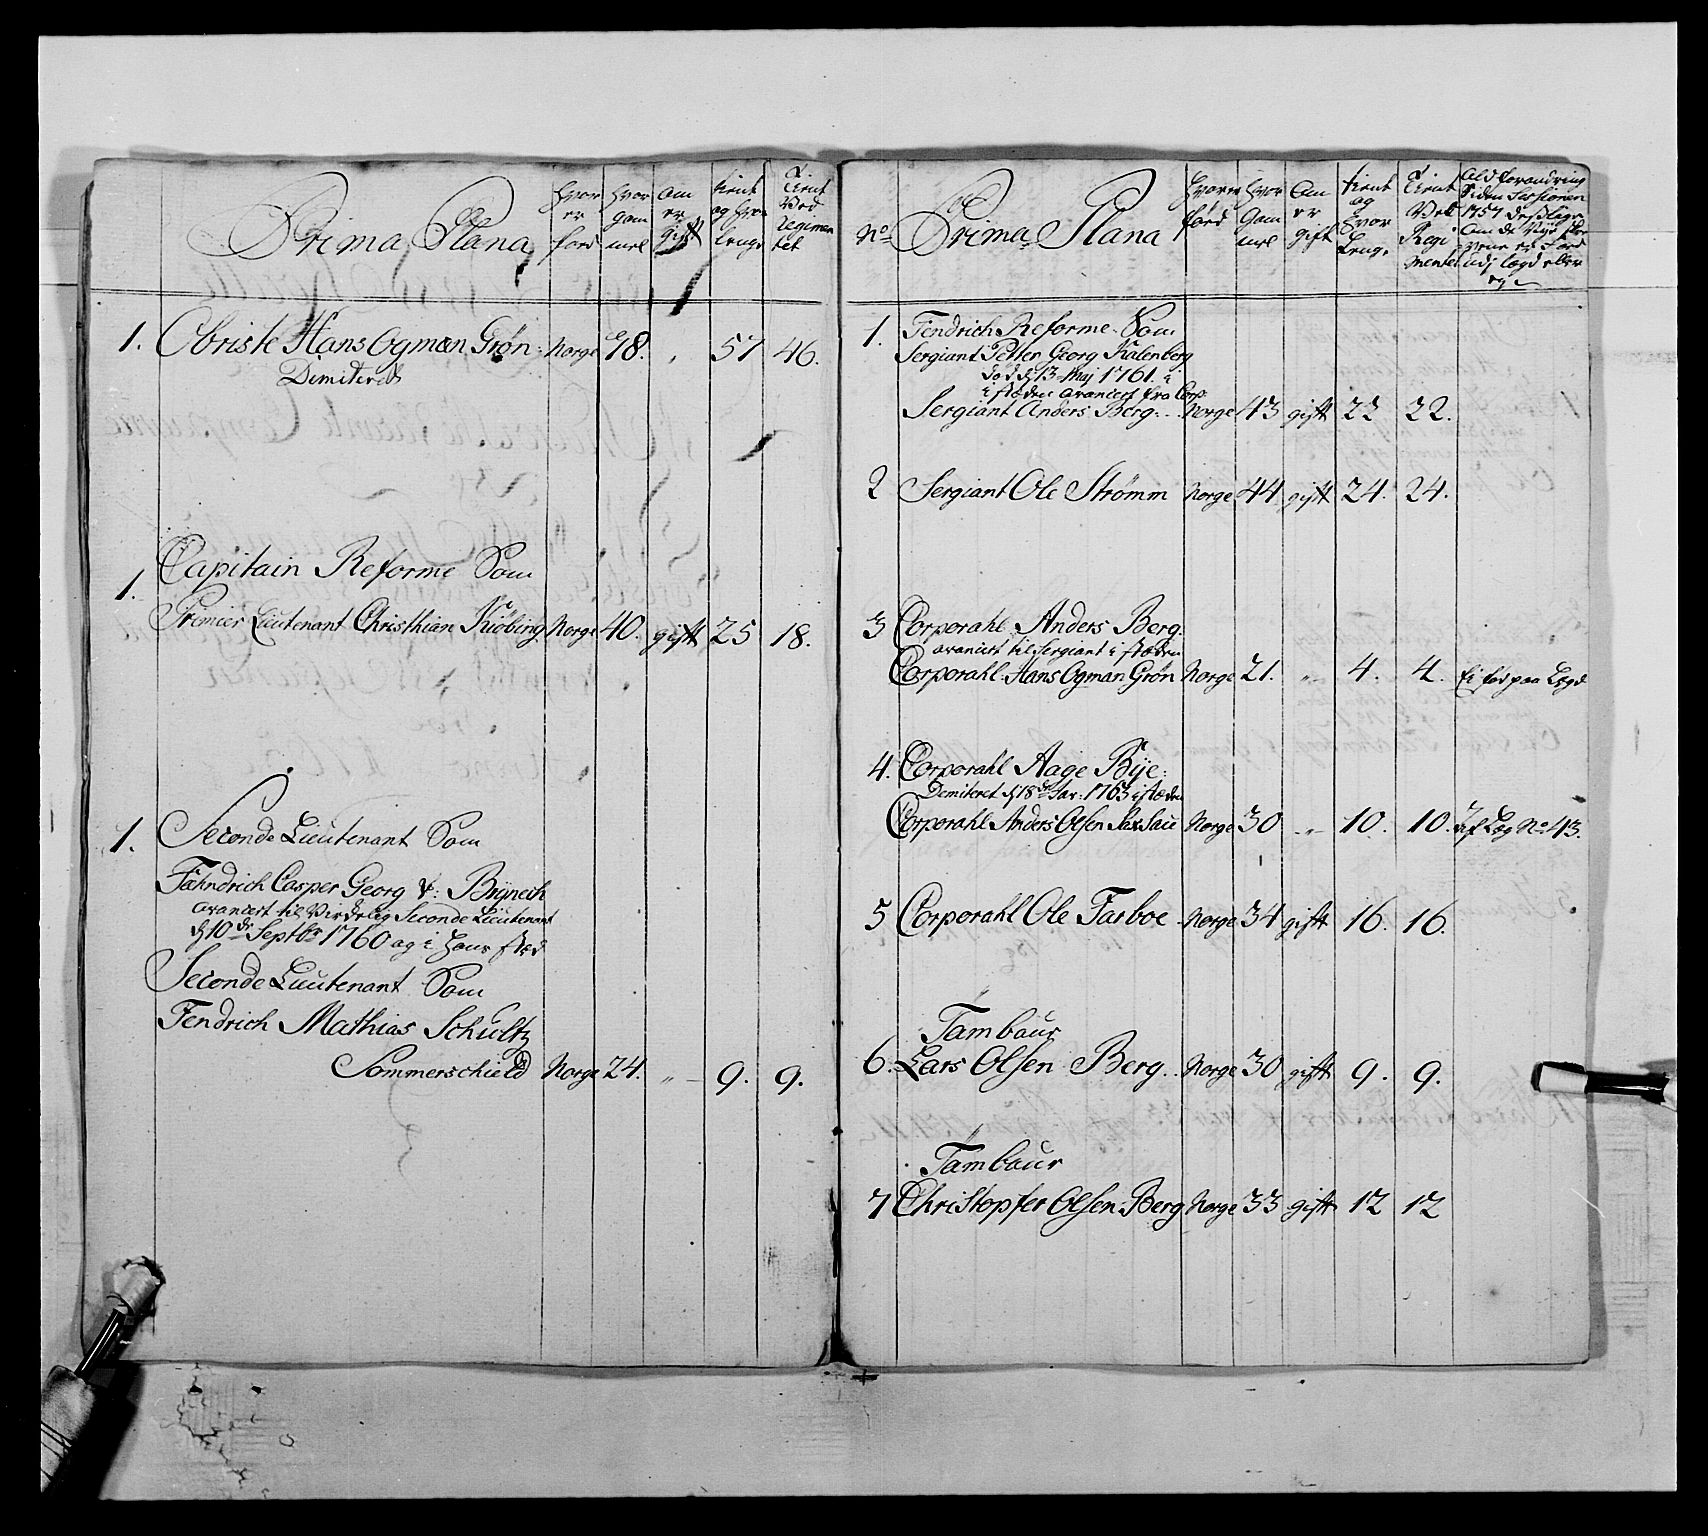 Prima Plana
hvor er fød
hvor gammel
om er gift
tient og hvor lenge
Tient Ved Regimentet
1. Obriste Hans Ogman Grøn: Norge 78. „ 57 46.
Demiteret
1. Capitain Reforme Som
Premier Lieutenant Christhian Kiøbing Norge 40. gift 25 18.
1. Seconde Lieutenant Som
Fahndrich Casper Georg v: Brÿnech
avanciert til Virckelig Seconde Lieutenant
d 10de Septbr 1760 og i hans stæd
Seconde Lieutenant Som
Fendrich Mathias Schultz
Sommerschield Norge 24. „ 9. 9.
No Prima Plana
hvor er fød
hvor Gammel
Om er gift
tient og hvor lenge
Tient Ved Regimentet
Ald forandring
Siden Sessionen
1757 desligeste
Om de Nye
ere fød
udj lægd eller
ey
1. Fendrich Reforme Som
Sergiant Petter Georg Kalenberg
død d 13 Maj 1761. i
i stæden avanciert fra Corp:
Sergiant Anders Berg: Norge 43 gift 22 22.
2 Sergiant Ole Strömm Norge 44 gift 24. 24.
3 Corporahl Anders Berg:
avanciert til Sergiant i stæden
Corporahl Hans Ogman Grön Norge 21. „ 4. 4. Ei fød paa Lægd
4. Corporahl Aage Bÿe:
Demiteret d 18de Jan: 1763 i stæden
Corporahl Anders Olsen Norge 30 „ 10. 10. af Læg No 43.
5 Corporahl Ole Farboe Norge 34 gift 16. 16.
Tambour
6. Lars Olsen Berg Norge 30 gift 9. 9.
Tambour
7 Christopfer Olsen Berg Norge 33 gift 12 12